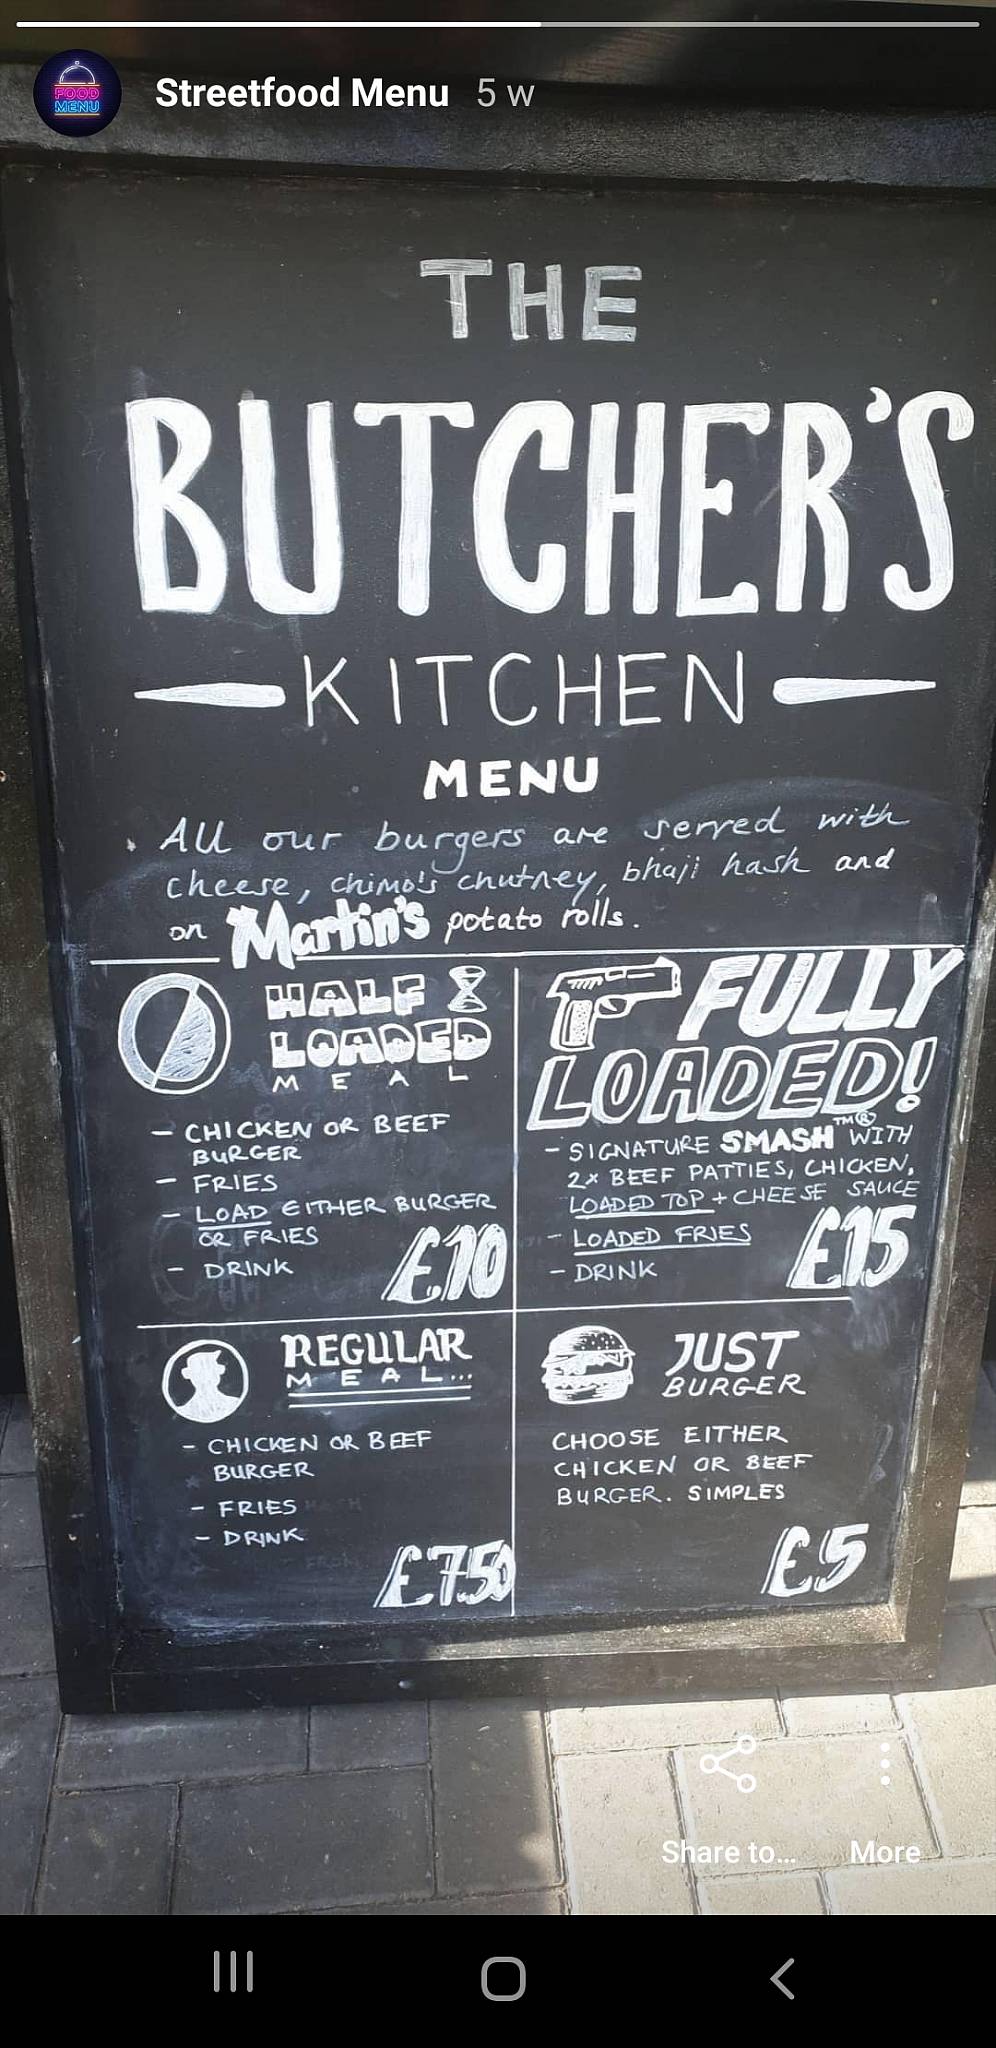 Streetfood Menu 5 w
FOOD
MENU
THE
BUTCHER'S
KITCHEN
MENU
All our burgers are served with
cheese, chimo's chutney, bhaji hash and
on Martin's potato rolls.
HALF
LOADED
MEAL
- CHICKEN OR BEEF
BURGER
- FRIES
- LOAD EITHER BURGER
OR FRIES
- DRINK
£10
FULLY
LOADED!
- SIGNATURE SMASH™® WITH
2x BEEF PATTIES, CHICKEN,
LOADED TOP + CHEESE SAUCE
- LOADED FRIES
- DRINK
£15
REGULAR
MEAL...
- CHICKEN OR BEEF
BURGER
- FRIES
- DRINK
£7.50
JUST
BURGER
CHOOSE EITHER
CHICKEN OR BEEF
BURGER. SIMPLES
£5
Share to... More